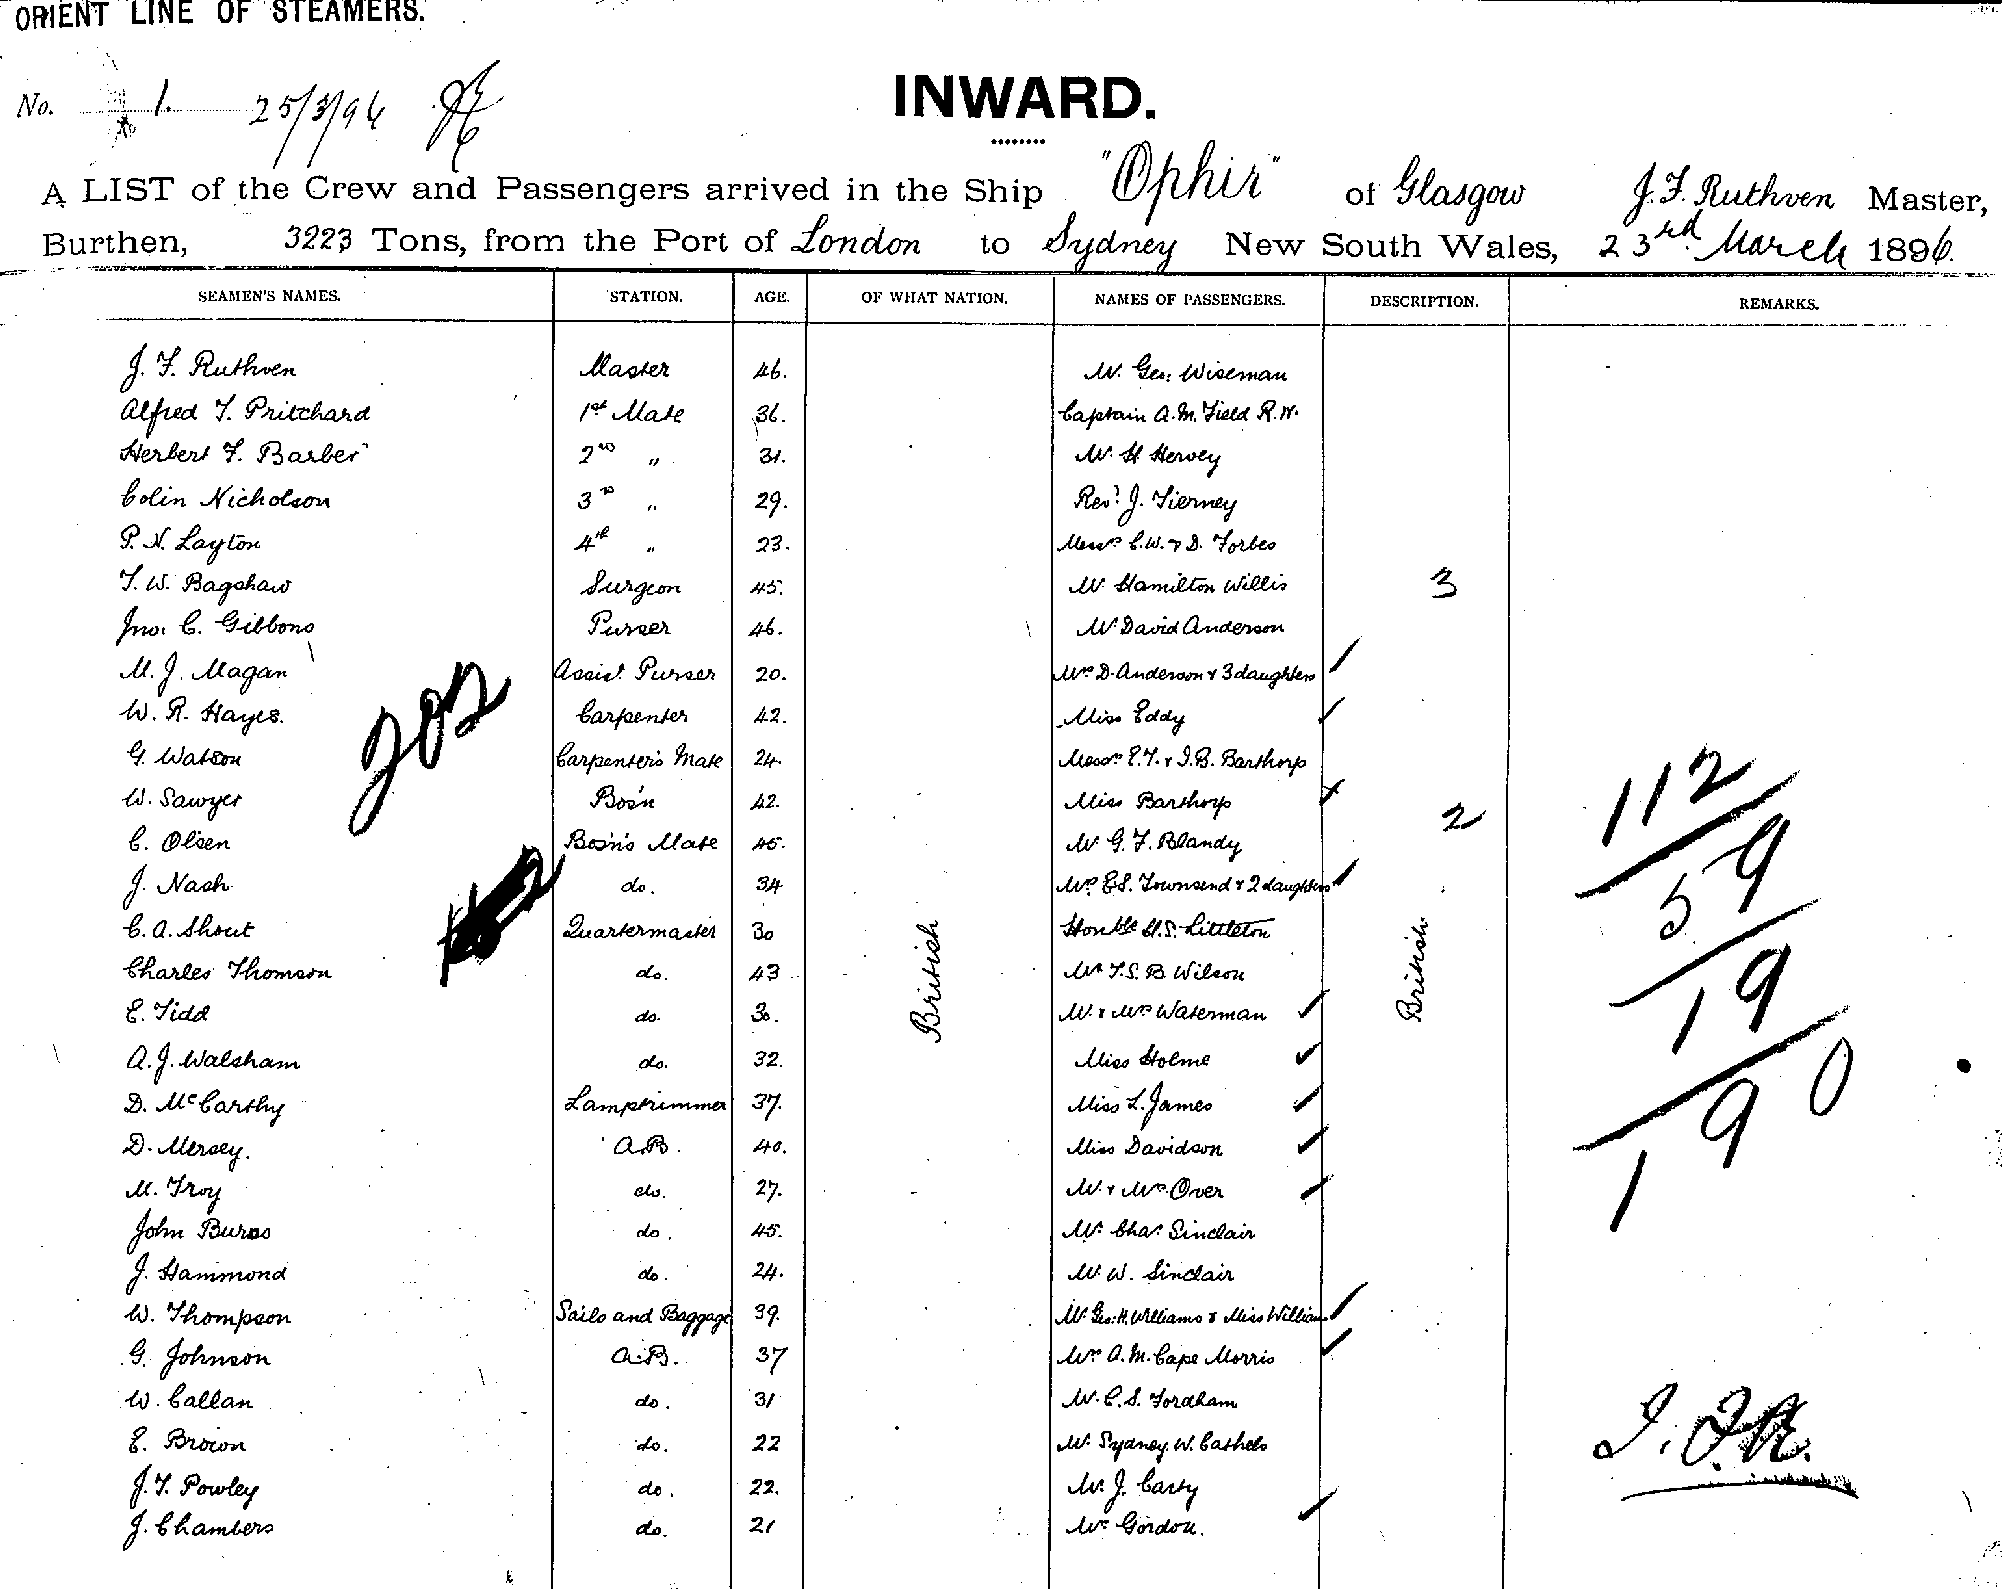 ORIENT LINE OF STEAMERS.
No. 1. 25/3/96
INWARD.
A LIST of the Crew and Passengers arrived in the Ship "Ophir" of Glasgow J. F. Ruthven Master,
Burthen, 3223 Tons, from the Port of London to Sydney New South Wales, 23rd March 1896.
SEAMEN'S NAMES. STATION. AGE. OF WHAT NATION. NAMES OF PASSENGERS. DESCRIPTION. REMARKS.
J. F. Ruthven Master 46. Mr. Geo: Wiseman
Alfred T. Pritchard 1st Mate 36. Captain A. M. Field R.N.
Herbert F. Barber 2nd " 31. Mr. H Hervey
Colin Nicholson 3rd " 29. Revd J. Tierney
P. N. Layton 4th " 23. Messrs C. W. & D. Forbes
T. W. Bagshaw Surgeon 45. Mr Hamilton Willis 3
Jno. C. Gibbons Purser 46. Mr David Anderson
M. J. Magan Assist. Purser 20. Mrs D. Anderson & 3 daughters
W. R. Hayes. Carpenter 42. Miss Eddy
G. Watson Carpenter's Mate 24. Messrs E. T. & I. B. Barthorp
202
W. Sawyer Bos'n 42. Miss Barthorp 2 112
C. Olsen Bos'n's Mate 45. Mr G. F. Blandy
J. Nash do. 34 Mrs E S. Townsend & 2 daughters 59
C. A. Shout Quartermaster 30 Honble H. S. Littleton
Charles Thomson do. 43 Mr T. S. B. Wilson
British British
E. Tidd do. 30. Mr & Mrs Waterman 19
A. J. Walsham do. 32. Miss Holme
D. McCarthy Lamptrimmer 37. Miss L. James
D. Mersey. A.B. 40. Miss Davidson 190
M. Troy do. 27. Mr & Mrs Over
John Burns do. 45. Mr. Chas. Sinclair
J. Hammond do. 24. Mr W. Sinclair
W. Thompson Sails and Baggage 39. Mr Geo: H. Williams & Miss Williams
G. Johnson A.B. 37 Mrs A. M. Cape Morris
W. Callan do. 31 Mr. C. S. Fordham
E. Brown do. 22 Mr Sydney W. Cathels
J. T. Powley do. 22. Mr. J. Carty
J. Chambers do. 21 Mrs Gordon.